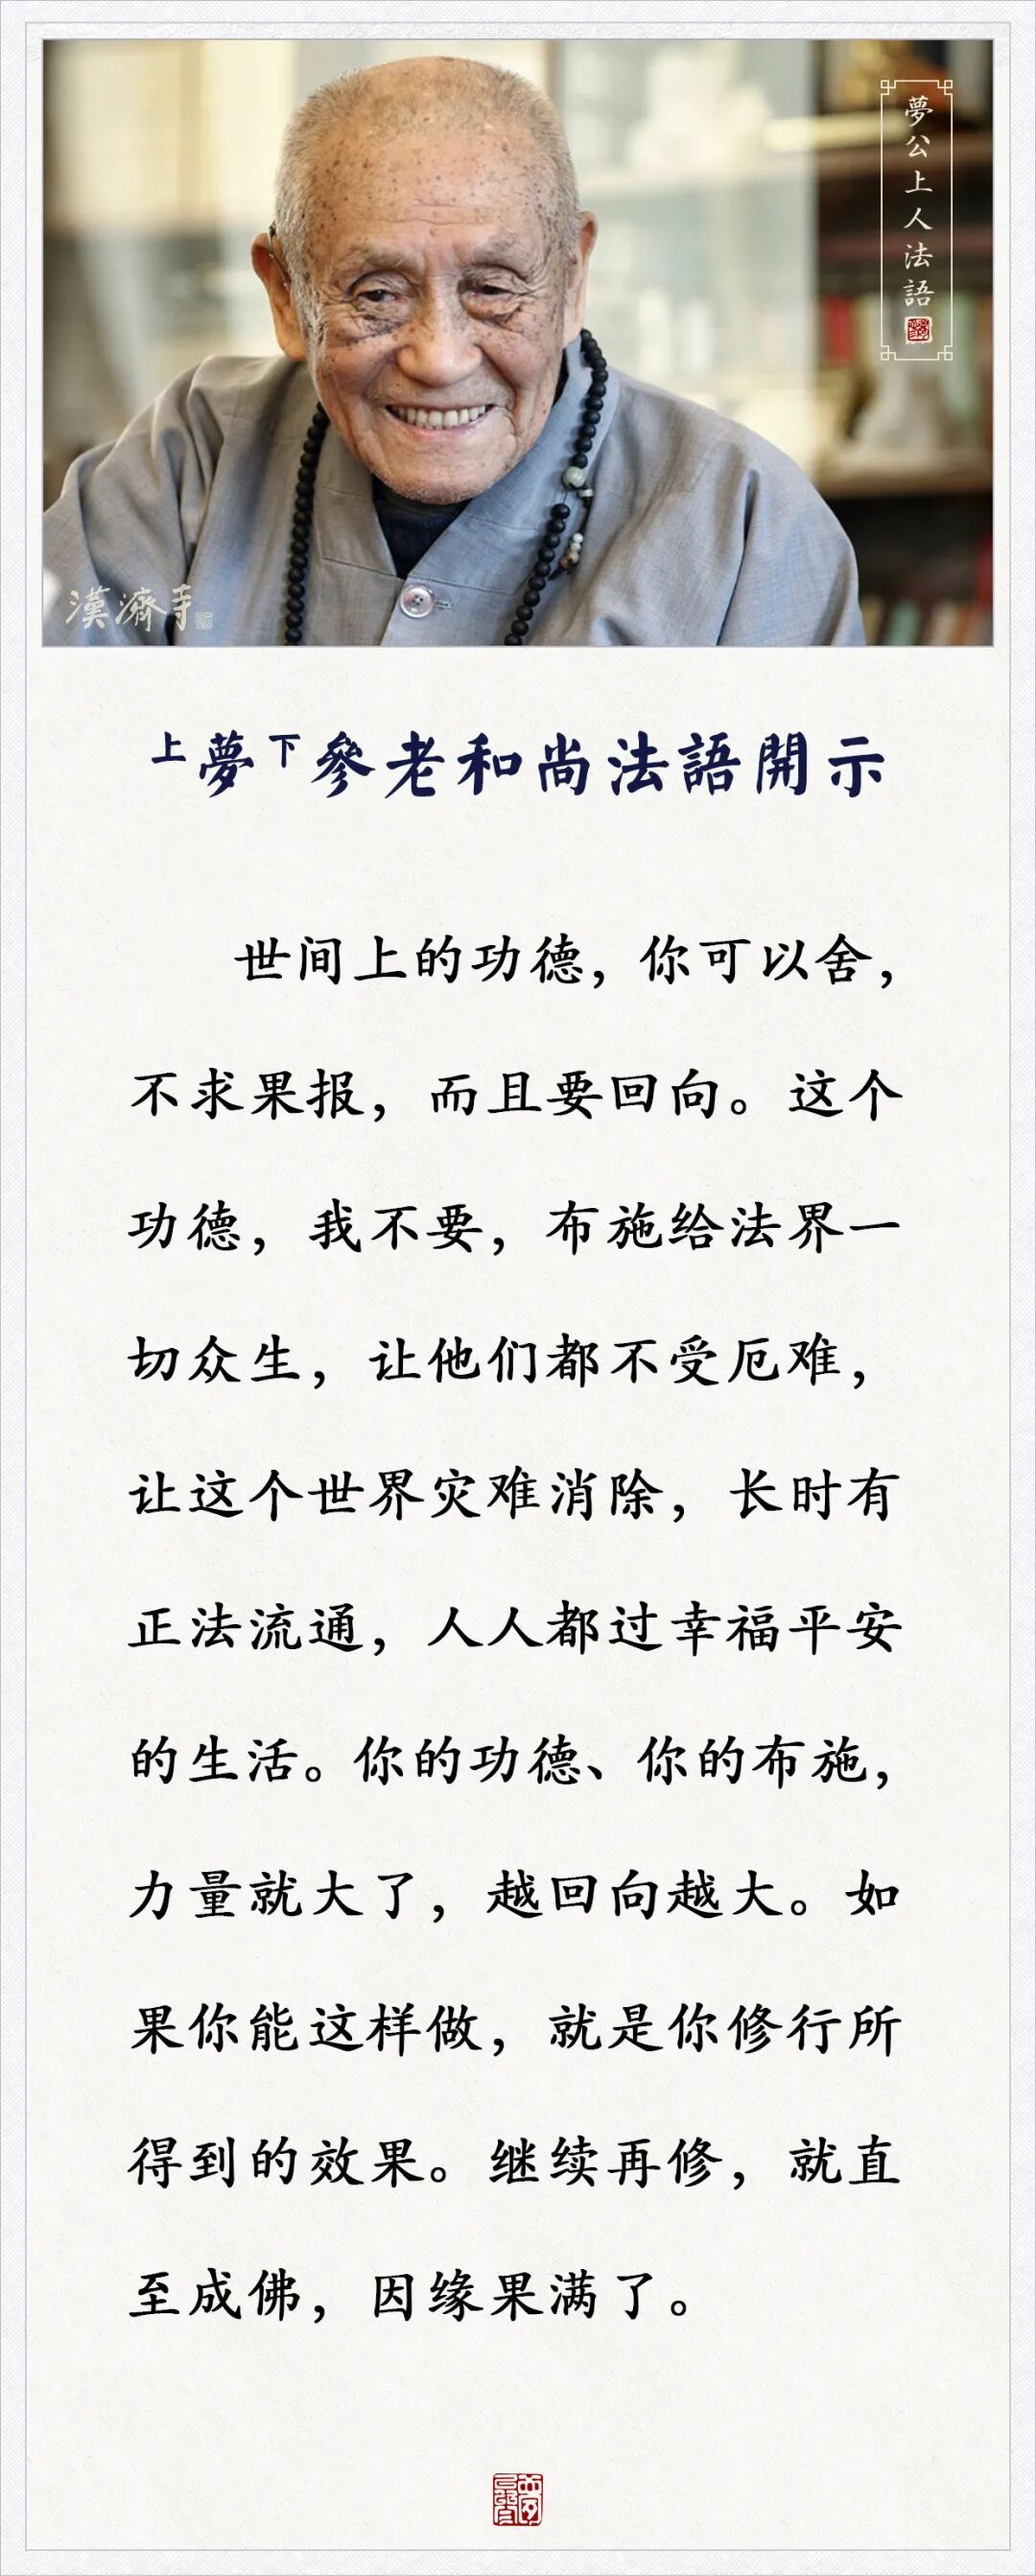 夢公上人法語
漢濟寺
上夢下參老和尚法語開示
世间上的功德，你可以舍，
不求果报，而且要回向。这个
功德，我不要，布施给法界一
切众生，让他们都不受厄难，
让这个世界灾难消除，长时有
正法流通，人人都过幸福平安
的生活。你的功德、你的布施，
力量就大了，越回向越大。如
果你能这样做，就是你修行所
得到的效果。继续再修，就直
至成佛，因缘果满了。